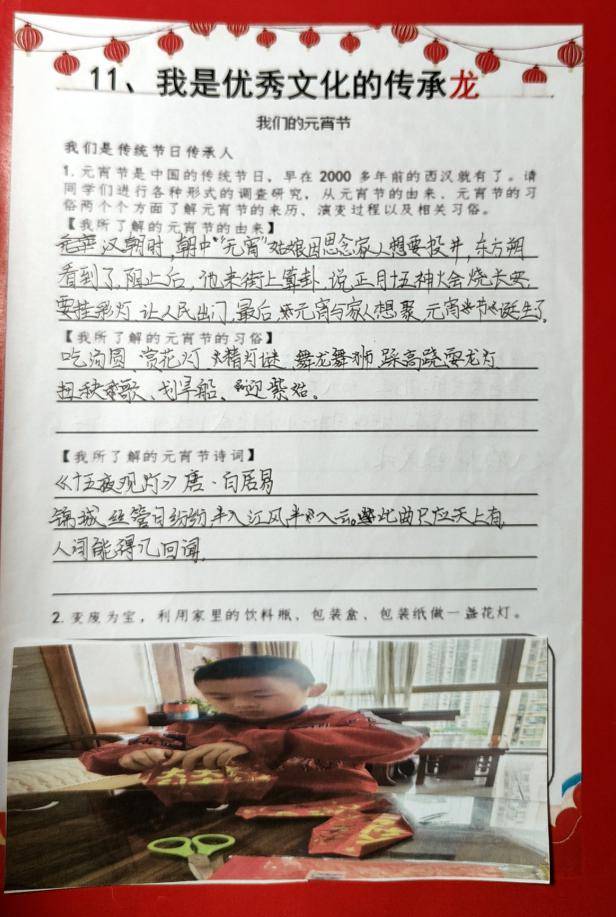 11、我是优秀文化的传承龙
我们的元宵节
我们是传统节日传承人
1. 元宵节是中国的传统节日，早在 2000 多年前的西汉就有了。请
同学们进行各种形式的调查研究，从元宵节的由来、元宵节的习
俗两个个方面了解元宵节的来历、演变过程以及相关习俗。
【我所了解的元宵节的由来】
汉朝时，朝中“元宵”姑娘因思念家人想要投井，东方朔
看到了，阻止后，他来街上算卦，说正月十五神火会烧长安，
要挂彩灯，让人民出门，最后元宵与家人想聚，元宵节诞生了。
【我所了解的元宵节的习俗】
吃汤圆、赏花灯、猜灯谜、舞龙舞狮、踩高跷、耍龙灯
扭秧歌、划旱船、迎紫姑。
【我所了解的元宵节诗词】
《十五夜观灯》唐·白居易
锦城丝管日纷纷，半入江风半入云。此曲只应天上有，
人间能得几回闻。
2. 变废为宝，利用家里的饮料瓶、包装盒、包装纸做一盏花灯。